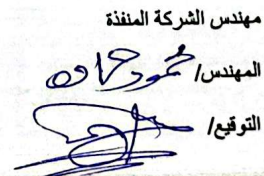 مهندس الشركة المنفذة
المهندس/ محمود حماده
التوقيع/